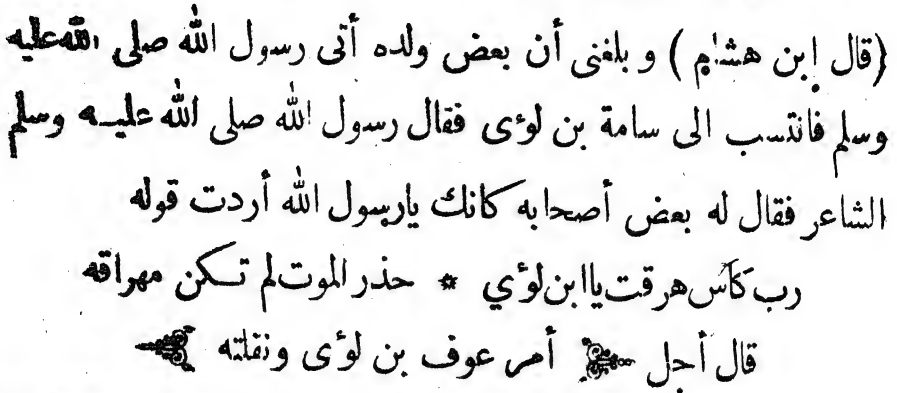 (قال إبن هشام) و بلغنى أن بعض ولده أتى رسول الله صلى الله عليه
وسلم فانتسب الى سامة بن لوءى فقال رسول الله صلى الله عليه وسلم
الشاعر فقال له بعض أصحابه كانك يارسول الله أردت قوله
رب كأس هرقت ياابن لوءي * حذر الموت لم تكن مهراقه
قال أجل أمر عوف بن لوءى ونقلته